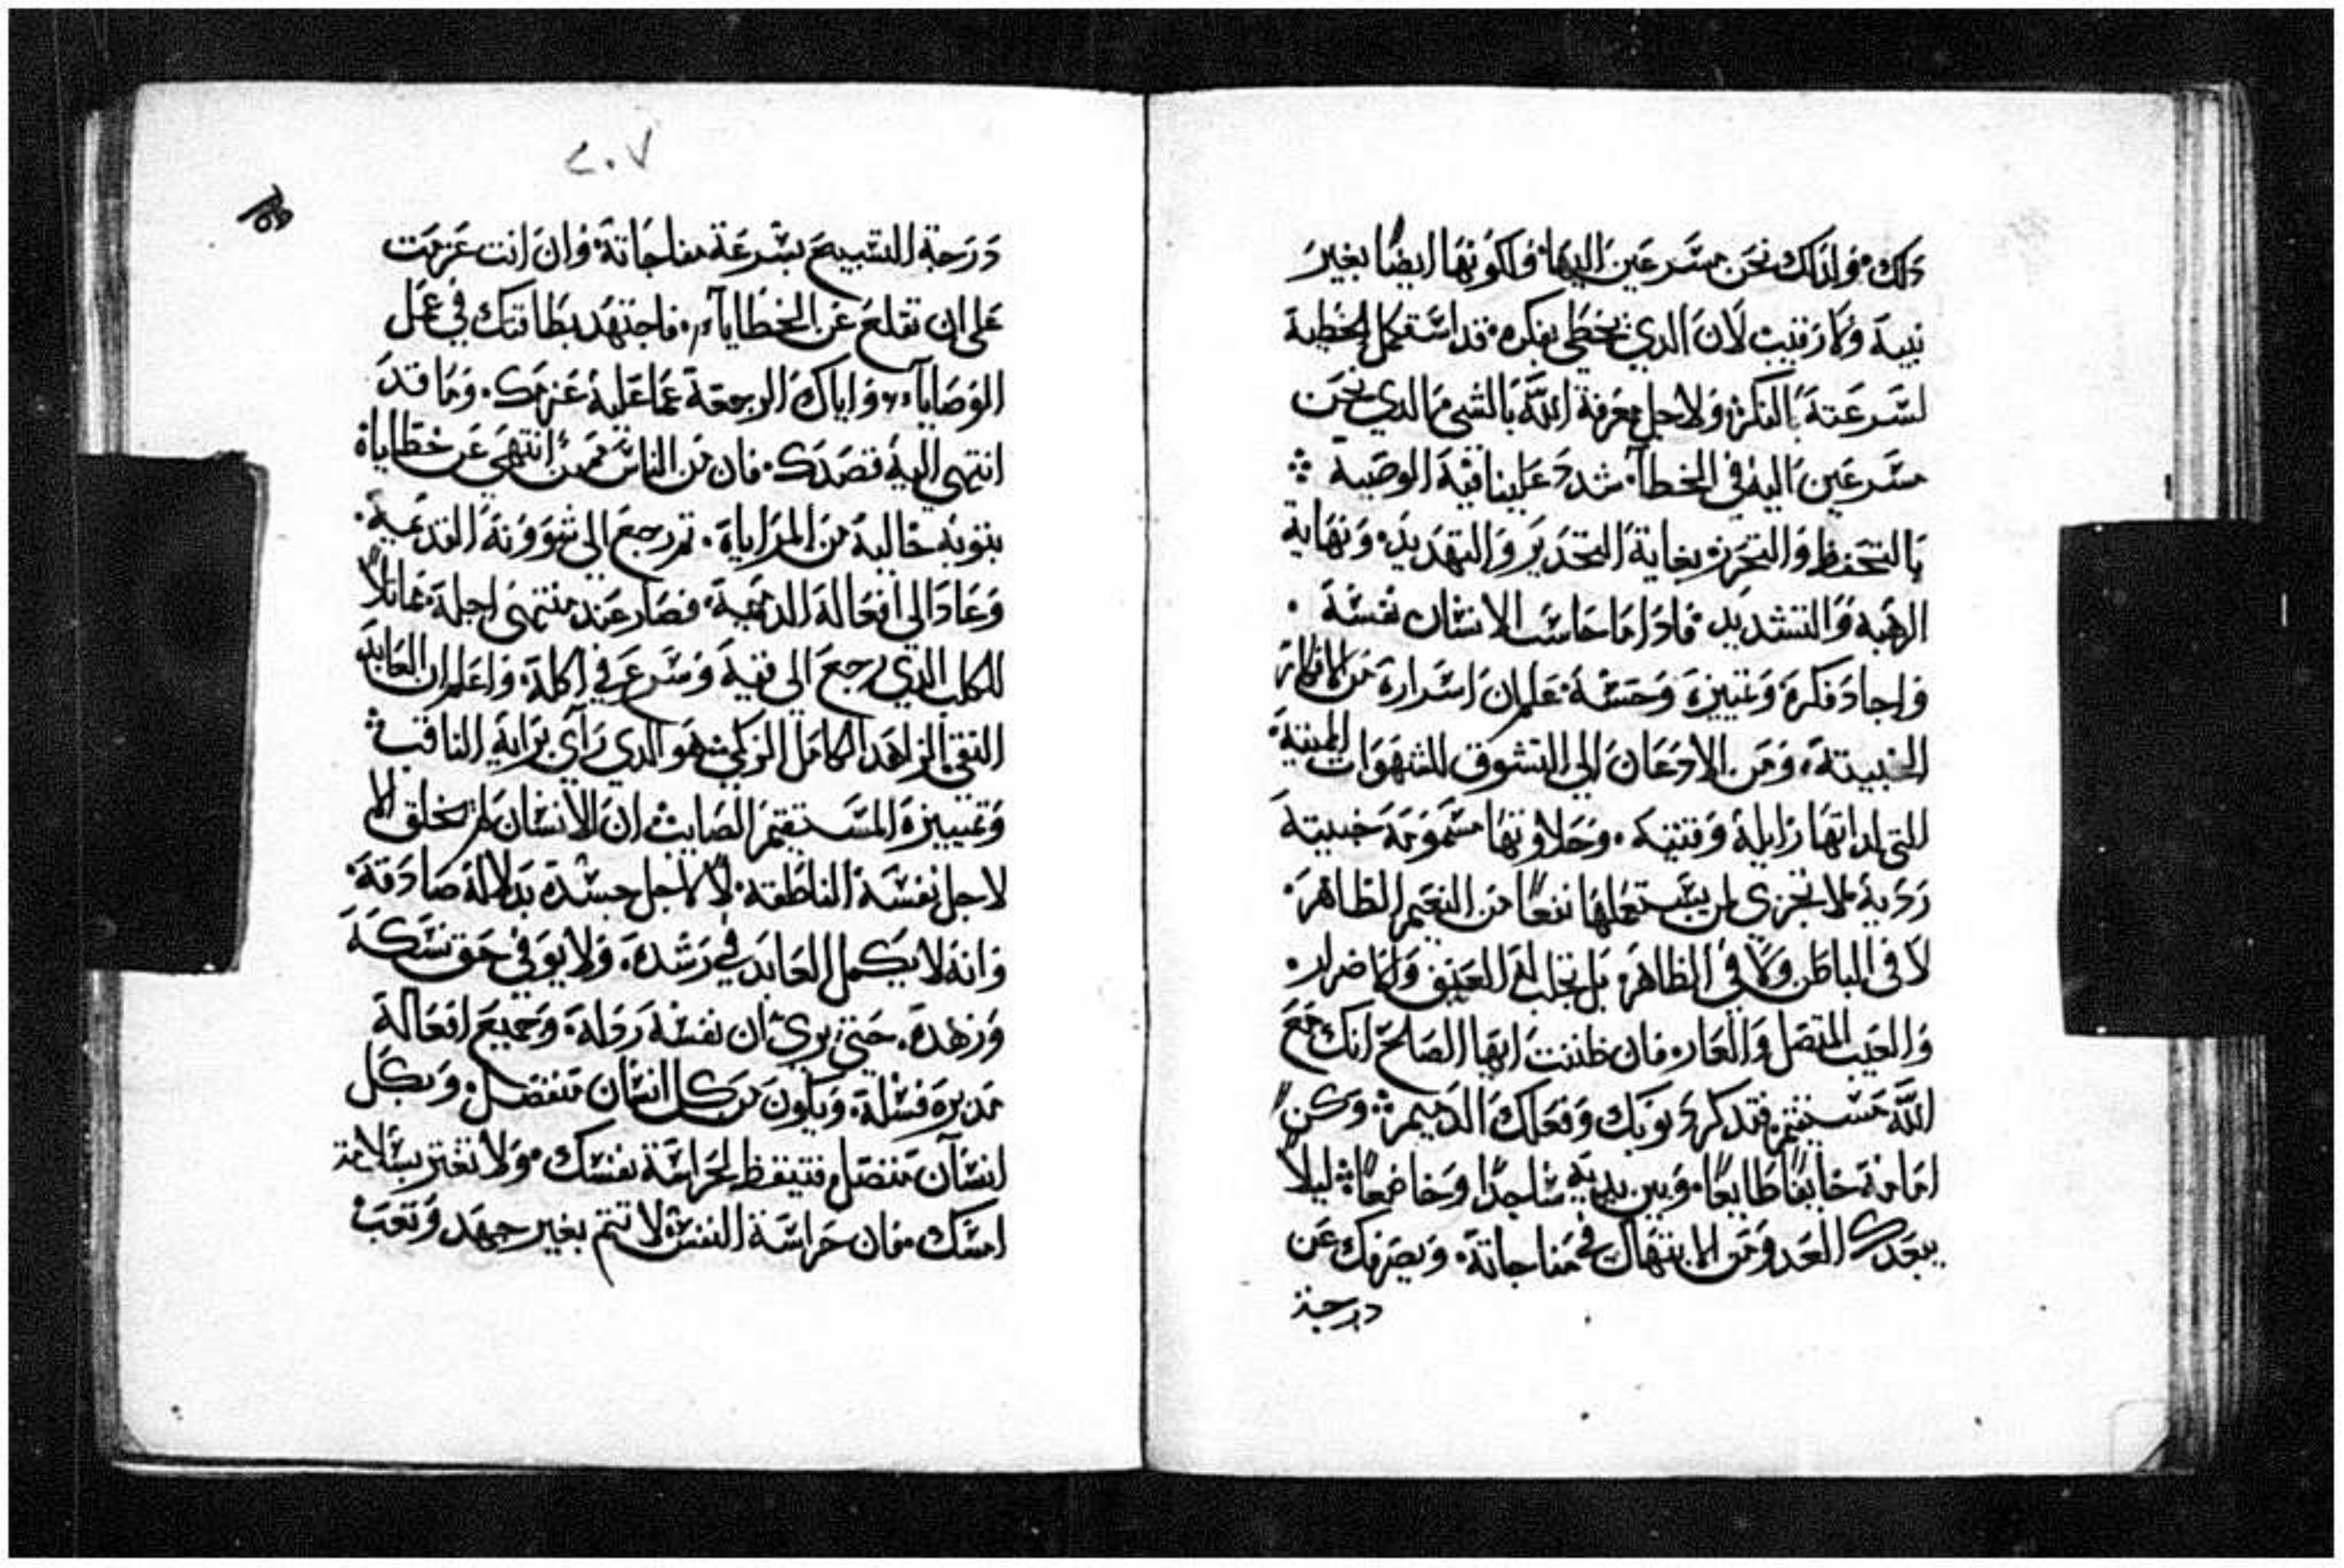 دلك. ولدلك نحن مسرعين اليها. ولكونها ايضًا بغير
نيية ولا رقيب لان الدي يخطي بفكره. قد استكمل الخطية
لسرعتة بالفكر. ولاجل معرفة اللّه بالشي الدي نحن
مسرعين اليه في الخطا. شدد علينا فية الوصية
بالتحفظ والتحرز بغاية التحدير والتهديد. ونهاية
الرهبة والتشديد. فادا ما حاسب الانسان نفسة.
واجاد فكرة وتمييزة وحسة. علم ان اسرارة من الافكار
الخبيتة. ومن الادعان الي التشوق للشهوات الميتة.
التي لداتها زايلة وفتنيه. وحلاوتها مسمومة خبيتة
ردية. لا تجزي لمن يستعملها نفعًا من النعيم الظاهر.
لا في الباطن ولا في الظاهر. بل تجلب لة العنيف والاضرار.
والعيب المتصل والعار. فان ظننت ايها الصالح انك مع
اللّه مستقيم. فتدكر دنوبك وفعلك الدميم. وكن
امامة خايفًا طايعًا. وبين يدية ساجدًا وخاضعًا. ليلًا
يبعدك العدو من الابتهال في مناجاتة. ويصرفك عن
درجة
٢٠٧
درجة التسبيح بسرعة مفاجاتة. وان انت عزمت
علي ان تقلع عن الخطايا. فاجتهد بطاقتك في عمل
الوصايا. واياك الرجعة عما علية عزمك. وما قد
انتهي الية قصدك. فان من الناس ممن انتهي عن خطاياة
بتوبة خالية من المراياة. تم رجع الي شوونة القدمية.
وعاد الي افعالة الدميمة. فصار عند منتهي اجلة. مماتلًا
للكلب الدي رجع الي قيية وسرع في اكلة. واعلم ان العابد
التقي الزاهد الكامل الزكي. هو الدي راي براية التاقب
وتمييزة المستقيم الصايب. ان الانسان لم يخلق الا
لاجل نفسة الناطقة. لا لاجل جسدة بدلالة صادقة.
وانه لا يكمل العابد في رشدة. ولا يوفي حق نسكة
وزهدة. حتي يري ان نفسة ردلة. وجميع افعالة
مديرة فشلة. ويكون من كل انسان منفصل. وبكل
انسان متصل. فتيقظ لحراسة نفسك. ولا تغتر بسلامة
امسك. فان حراسة النفس لا تتم بغير جهد وتعب